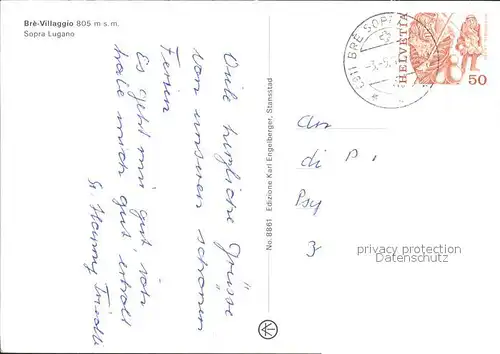 Brè-Villaggio 805 m s. m.
Sopra Lugano
Viele herzliche Grüsse
von unseren schönen
Ferien
Es geht mir gut, ich
habe mich gut erholt
No. 8861 Edizione Karl Engelberger, Stansstad
6911 BRÈ SOPRA
HELVETIA
50
An
di
Psy
3
privacy protection
Datenschutz